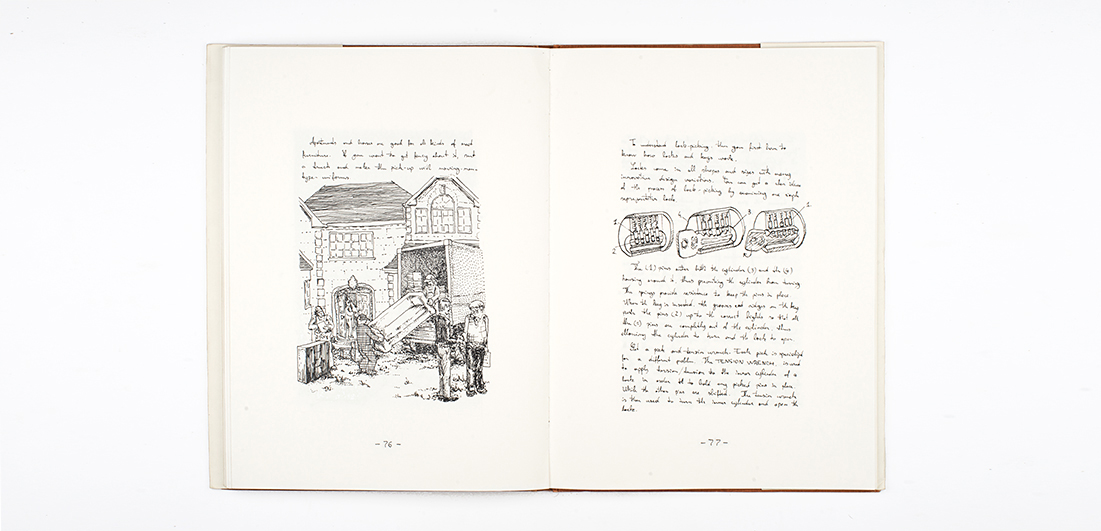 Apartments and houses are good for all kinds of used
furniture. If you want to get fancy about it, rent
a truck and make the pick-up with moving-man-
type uniforms
- 76 -
To understand lock-picking, then you first have to
know how locks and keys work.
Locks come in all shapes and sizes with many
innovative design variations. You can get a clear idea
of the process of lock-picking by examining one simple
representative lock.
1.
2.
4.
3.
1.
The (1) pins either hits the cylinder (3) and the (4)
housing around it thus preventing the cylinder from turning
The springs provide resistance to keep the pins in place.
When the key is inserted, the grooves and ridges on the key
push the pins (2) up to the correct height so that all
the (1) pins are completely out of the cylinder, thus
allowing the cylinder to turn and the lock to open.
Get a pick and tension wrench. Each pick is specialized
for a different problem. The TENSION WRENCH, is used
to apply torsion/tension to the inner cylinder of a
lock in order to hold any picked pins in place
while the other pins are shifted. The tension wrench
is then used to turn the inner cylinder and open the
lock.
- 77 -